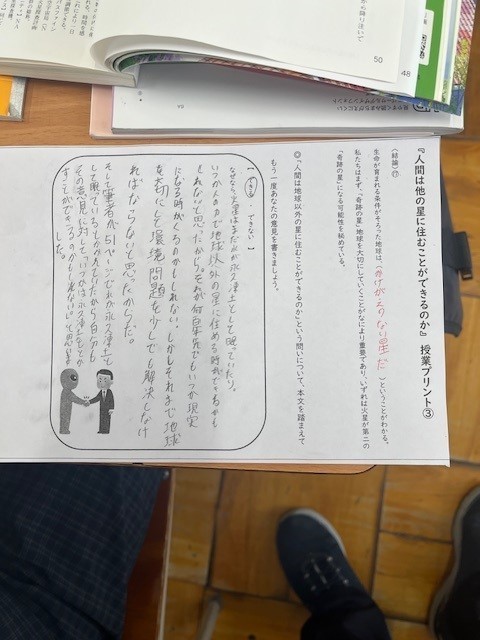 『人間は他の星に住むことができるのか』 授業プリント③
〈結論〉⑰
生命が育まれる条件がそろった地球は、(かけがえのない星だ)ということがわかる。
私たちはまず、「奇跡の星」地球を大切にしていくことがなにより重要であり、いずれは火星が第二の
「奇跡の星」になる可能性を秘めている。
◎「人間は地球以外の星に住むことができるのか」という問いについて、本文を踏まえて
もう一度あなたの意見を書きましょう。
【 できる ・ できない 】
なぜなら火星はまだ水が氷や凍土として眠っていたり、
いつか人の力で地球以外の星に住める時がくるかも
しれないと思ったからだ。それが何百年先でもいつか現実
になる時がくるのかもしれない。しかしそれまで地球
を大切にして環境問題を少しでも解決しなけ
ればならないと思ったからだ。
そして筆者が51ページで水が氷や凍土と
して眠っているとしてかかれていたから自分も
その意見に対して
かもしれない」と思いま
した。
50
48